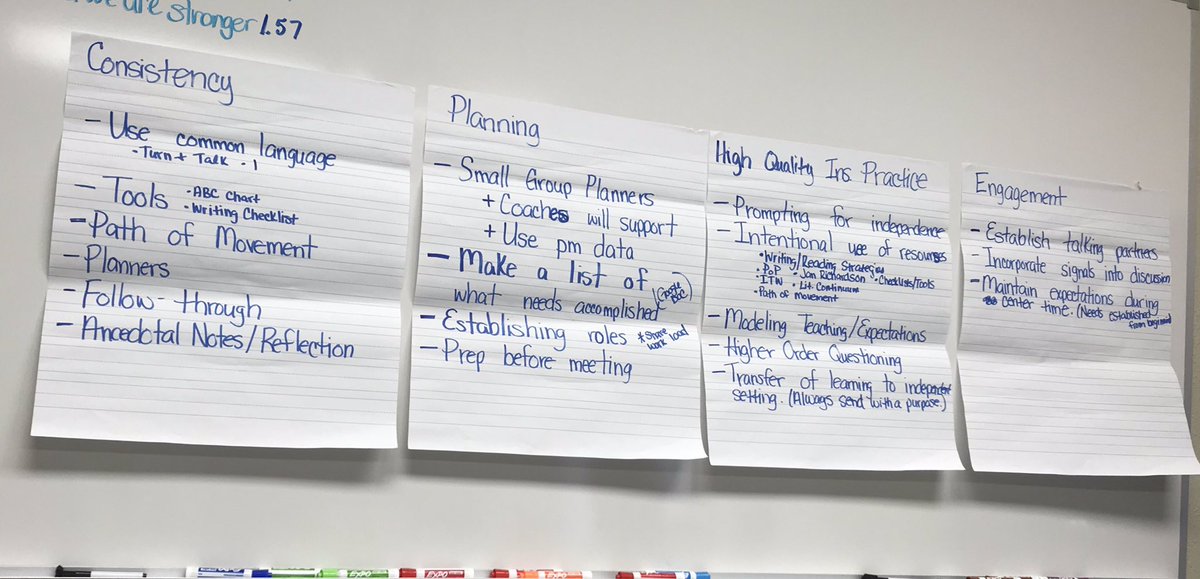 we are stronger 1.57
Consistency
- Use common language
- Turn + Talk - 1
- Tools - ABC Chart
- Writing Checklist
- Path of Movement
- Planners
- Follow-through
- Anecdotal Notes/Reflection
Planning
- Small Group Planners
+ Coaches will support
+ Use pm data
- Make a list of
what needs accomplished
- Establishing roles *Share
work load
- Prep before meeting
High Quality Ins. Practice
- Prompting for independence
- Intentional use of resources
• Writing/Reading Strategies
• PoP • Jan Richardson • Checklists/Tools
ITW • Lit. Continuum
• Path of movement
- Modeling Teaching/Expectations
- Higher Order Questioning
- Transfer of learning to independent
setting. (Always send with a purpose.)
Engagement
- Establish talking partners
- Incorporate signals into discussion
- Maintain expectations during
center time. (Needs established
from beginning)
EXPO
EXPO
EXPO